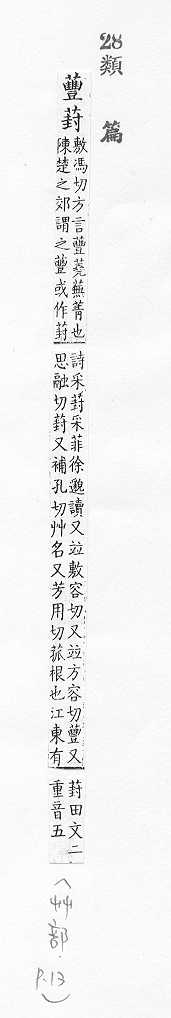 28
類篇
蘴葑
敷馮切方言蘴蕘蕪菁也
陳楚之郊謂之蘴或作葑
詩采葑采菲徐邈讀又竝敷容切又竝方容切蘴又
思融切葑又補孔切艸名又芳用切菰根也江東有
葑田文二
重音五
(艸部.
P.13)